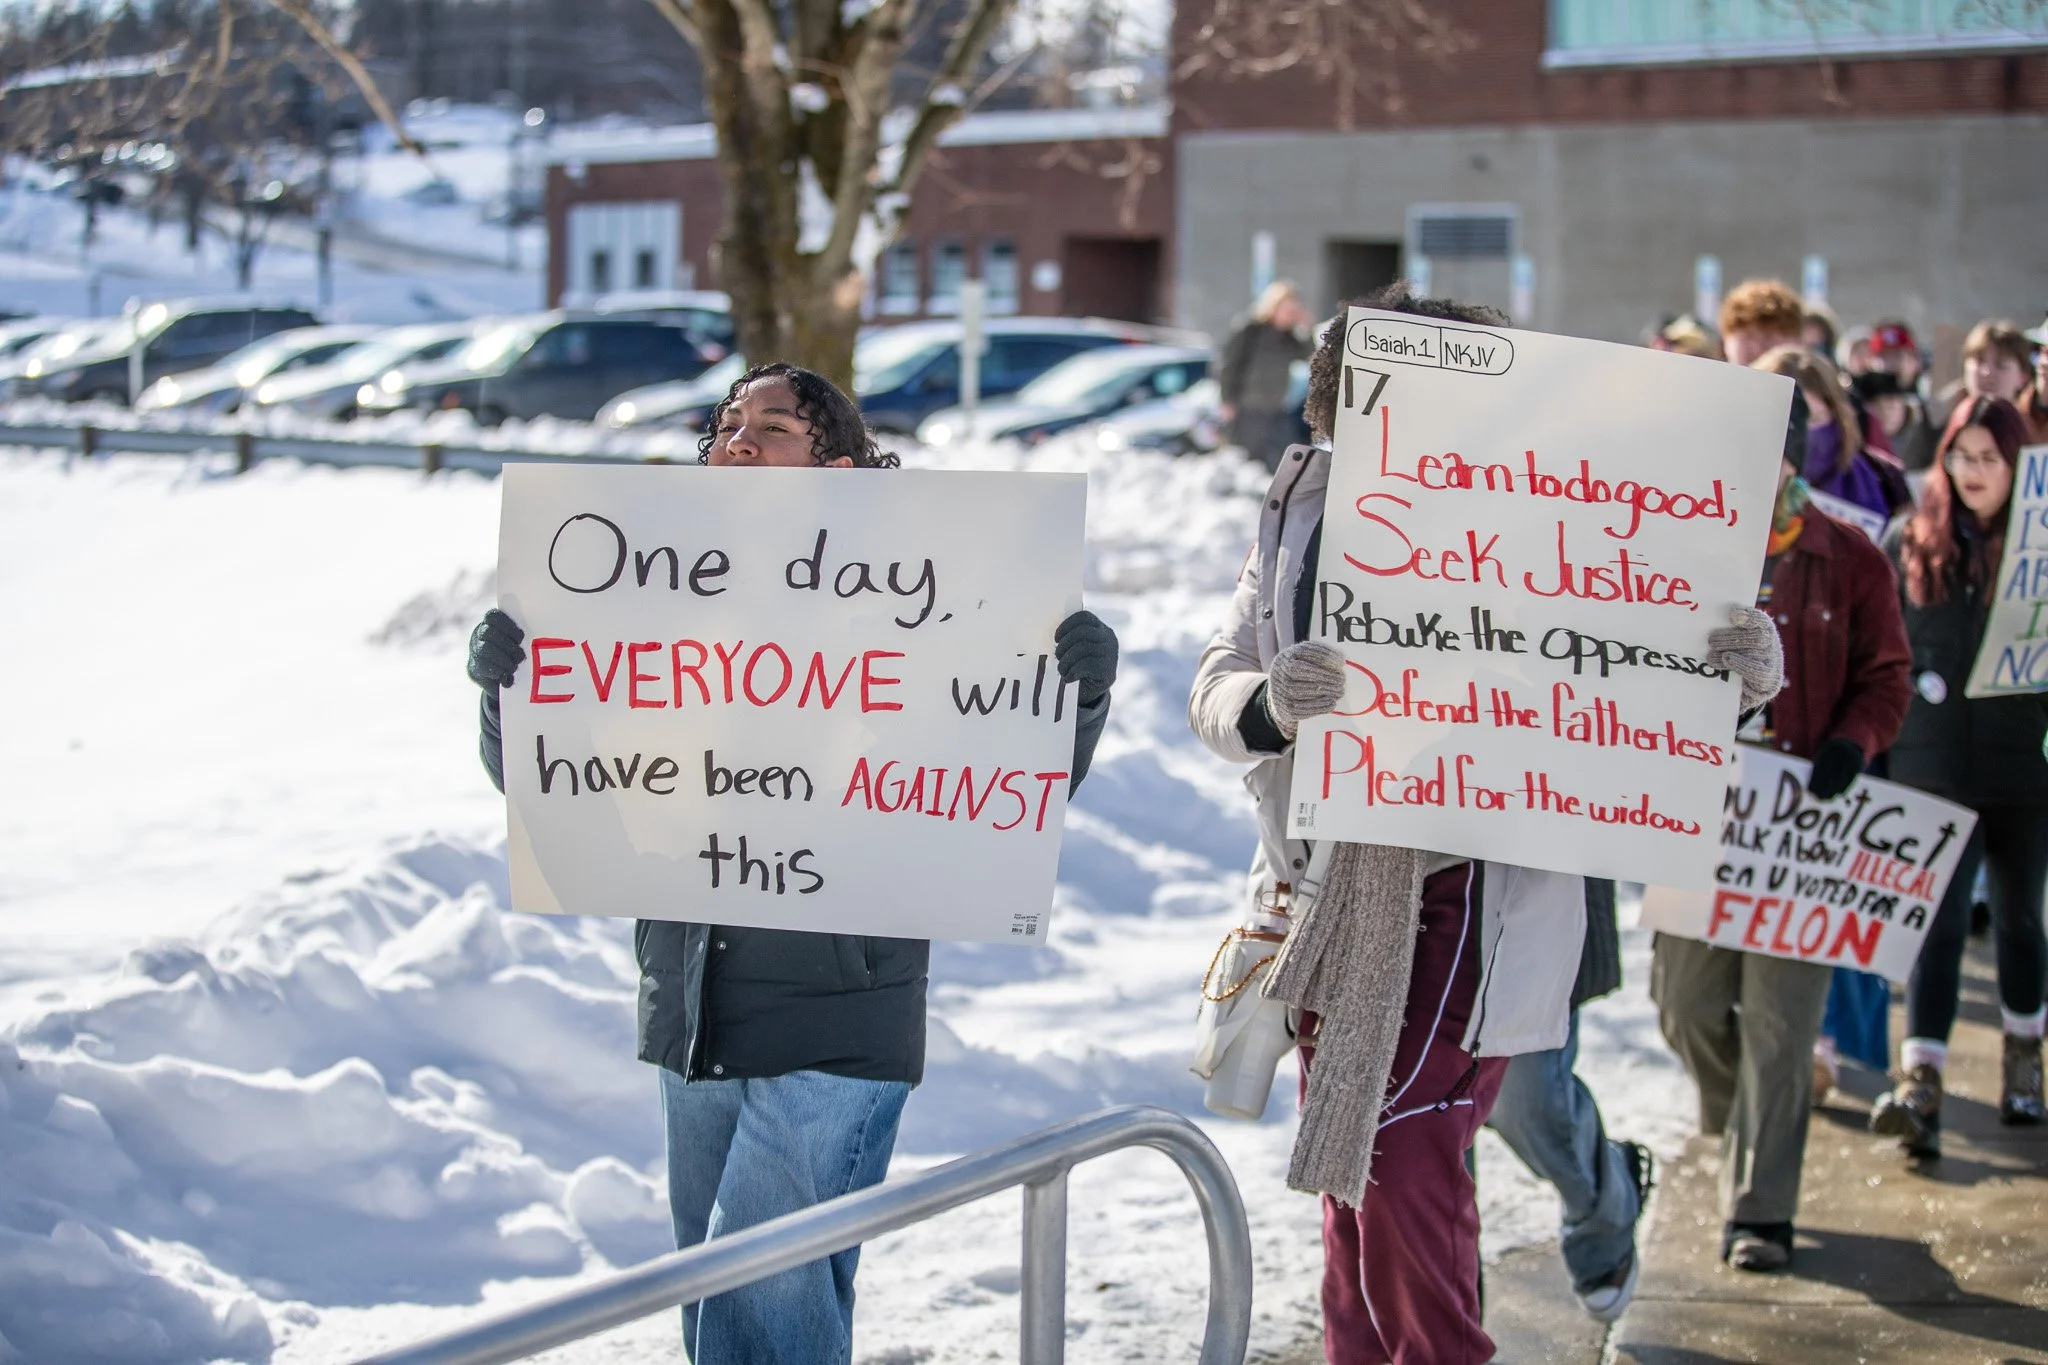 One day,
EVERYONE will
have been AGAINST
this
Isaiah 1 NKJV
17
Learn to do good;
Seek Justice,
Rebuke the oppressor
Defend the fatherless
Plead for the widow
Don't Get
About ILLEGAL
U VOTED FOR A
FELON